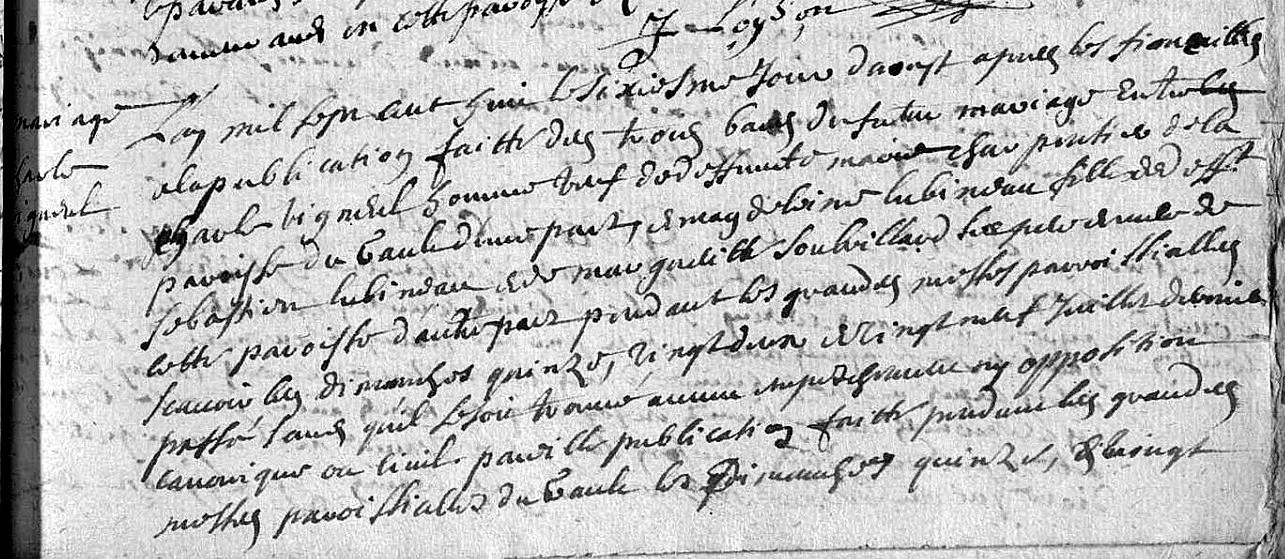 en cette paroisse
J Loyson
mariage
L'an mil sept cent huit le sixiesme Jour daoust apres les fiancailles
charle
et la publication faitte des trois bans du futur mariage Entre les
vigneul
charle vigneul homme veuf de deffuncte marie charpentier de la
paroisse du Gault d'une part, et magdeleine lubineau fille de deff.t
sebastien lubineau et de marguerite Souvillard ses pere et mere de
cette paroisse d'autre part pendant les grandes messes paroissialles
scavoir les dimanches quinze, vingt deux et vingt neuf Juillet dernier
passé sans qu'il se soit trouvé aucun empeschement ny opposition
canonique ou civile pareille publication faitte pendant les grandes
messes paroissialles du Gault les Dimanches quinze, & vingt